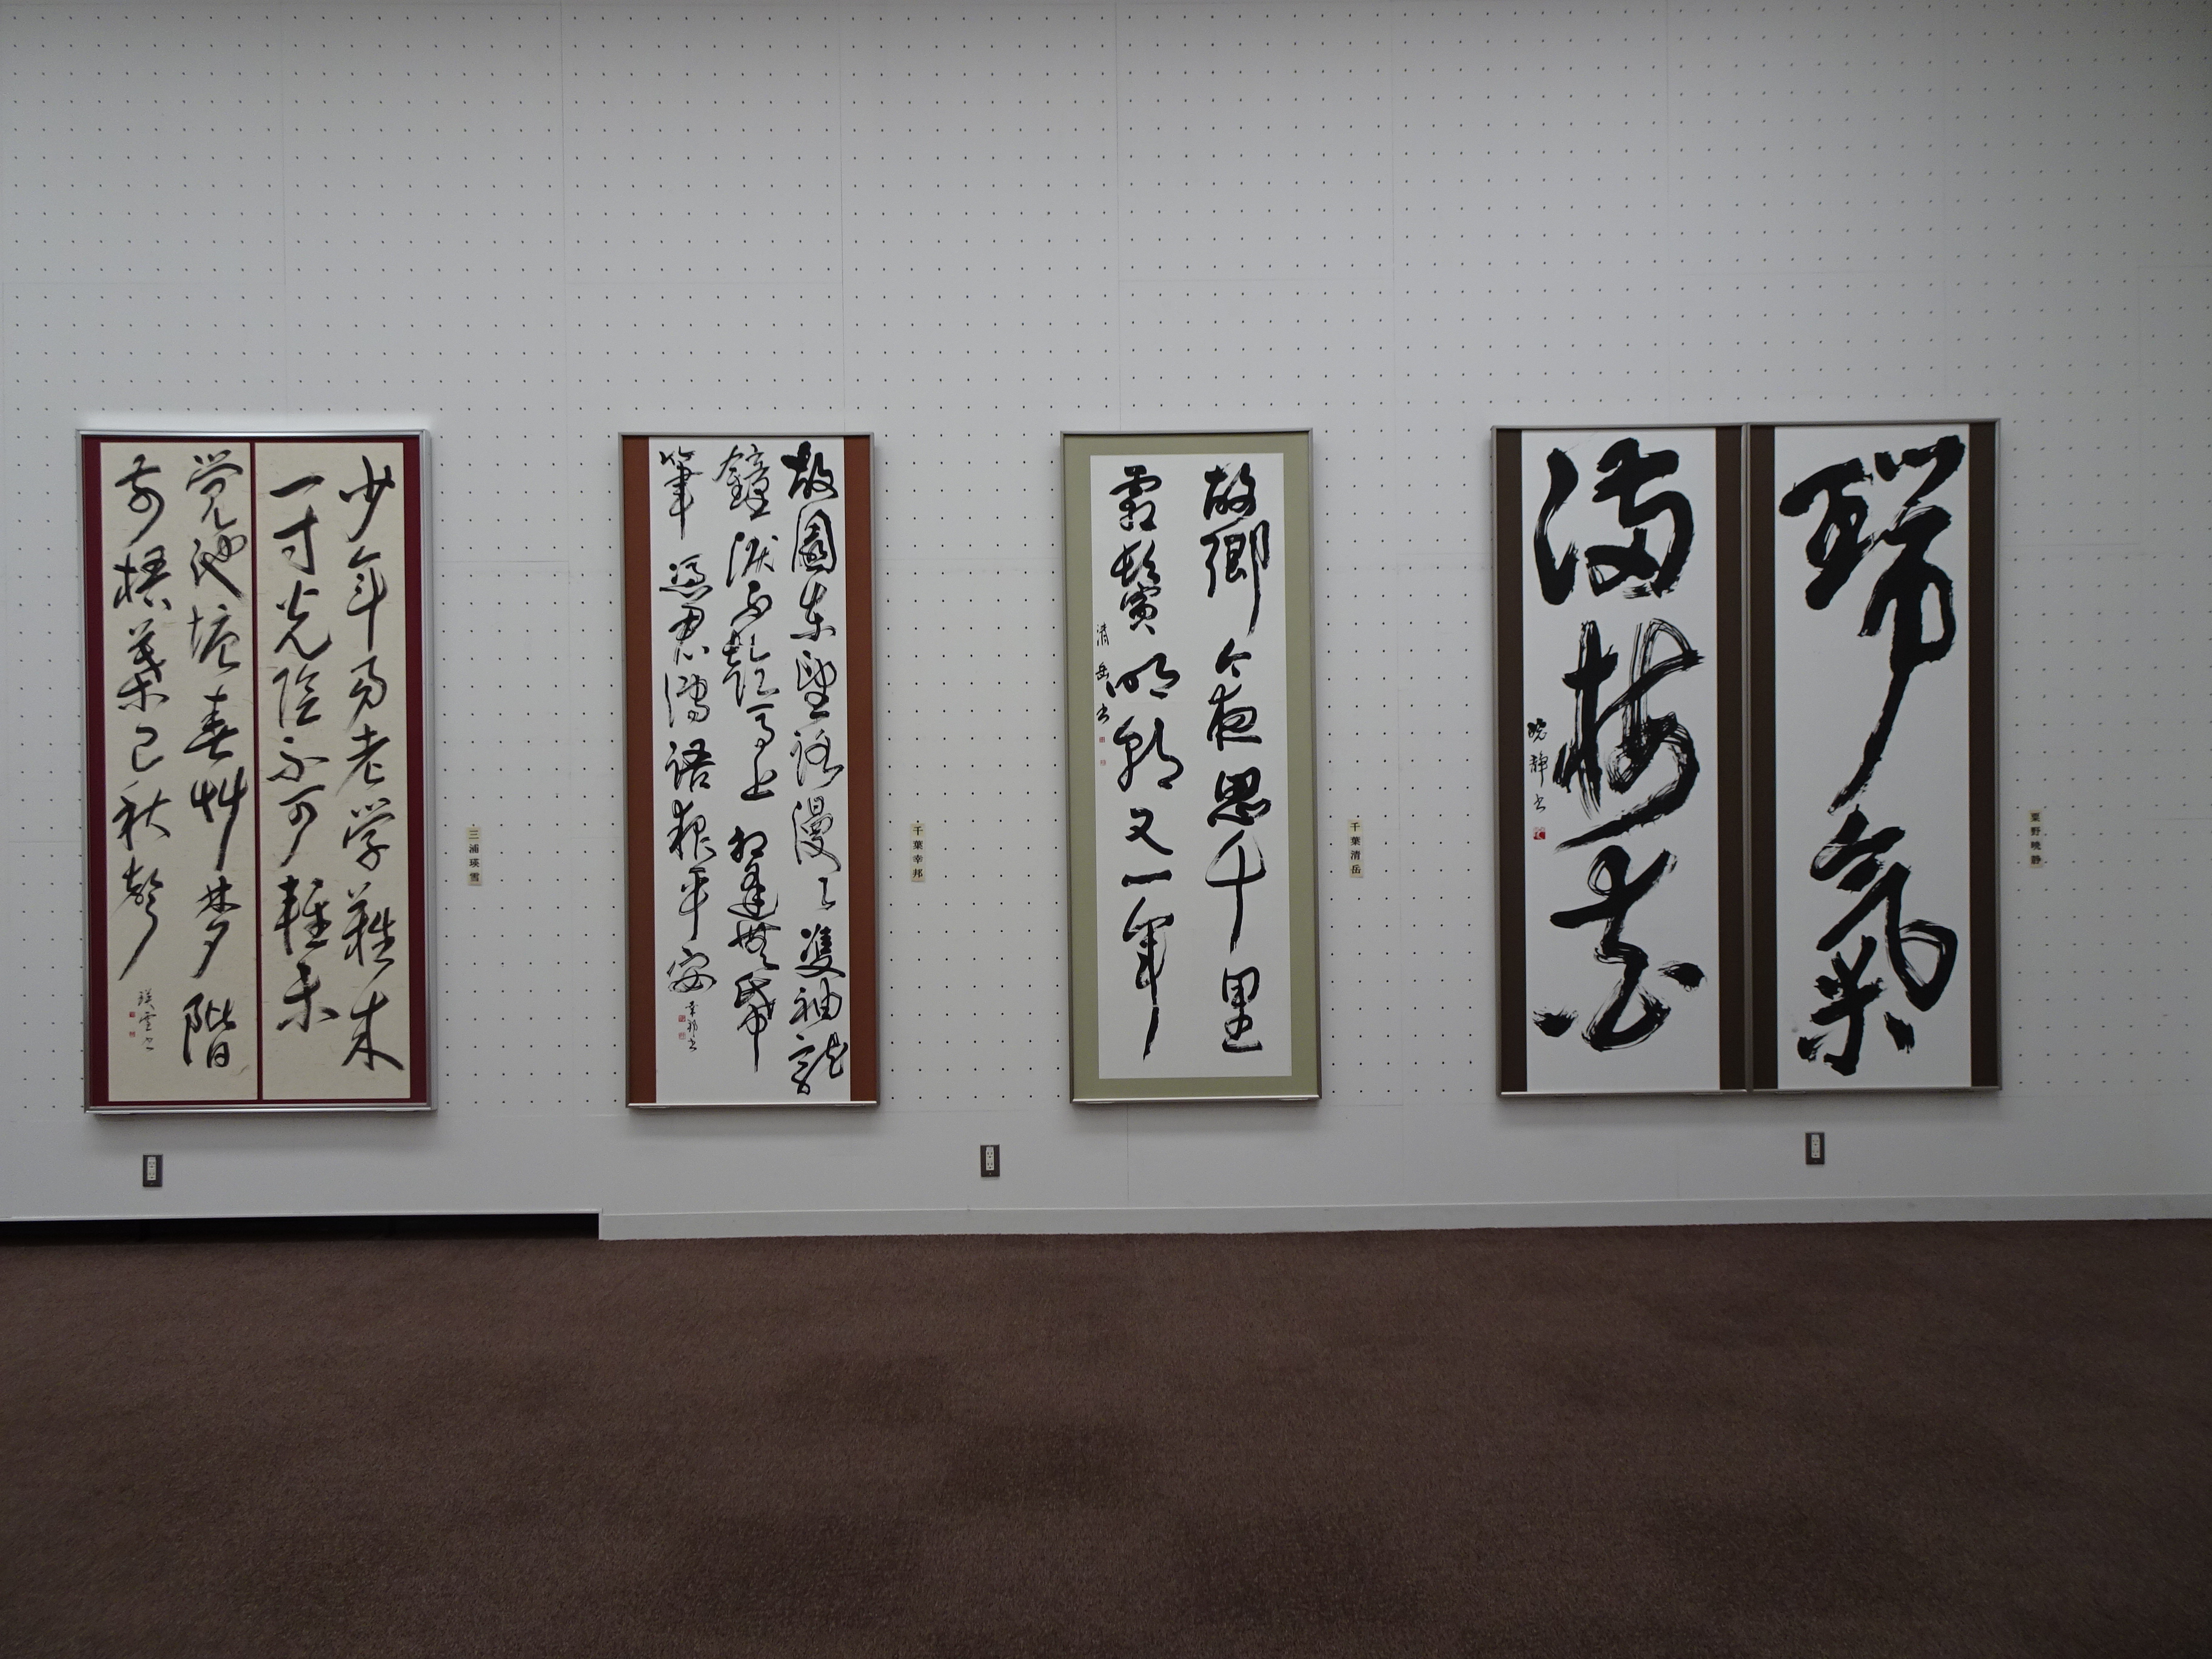 粟野暁静
瑞氣
満梅花
暁静書
千葉清岳
故郷今夜思千里
霜鬢明朝又一年
清岳書
千葉幸邦
故園東望路漫〻雙袖龍
鐘涙不乾馬上相逢無帋
筆憑君傳語報平安
幸邦書
三浦瑛雪
少年易老学難成
一寸光陰不可軽未
覚池塘春艸梦階
前梧葉已秋聲
瑛雪書